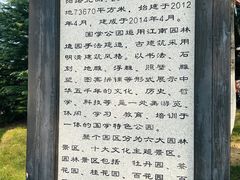 地73670平方米，始建于2012
年4月，建成于2014年4月。
国学公园运用江南园林
造园手法建造，古建筑采用
明清建筑风格，以书法、石
刻、地雕、浮雕、照壁、雕
塑、图案拼铺等形式展示中
华五千年的文化、历史、哲
学、科技等，是一处集游览、
休闲、学习、教育、培训于
一体的国学特色公园。
整个园区分为六大园林
景区、十大文化主题景区。
园林景区包括：牡丹园、茶
花园、桂花园、百花园